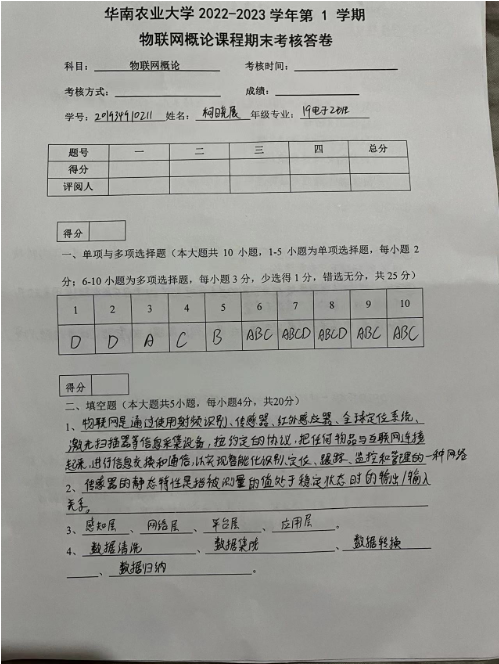 华南农业大学 2022-2023 学年第 1 学期
物联网概论课程期末考核答卷
科目： 物联网概论 考核时间：
考核方式： 成绩：
学号：201934910211 姓名： 柯晓展 年级专业： 19电子2班
题号 一 二 三 四 总分
得分
评阅人
得分
一、单项与多项选择题（本大题共 10 小题，1-5 小题为单项选择题，每小题 2
分；6-10 小题为多项选择题，每小题 3 分，少选得 1 分，错选无分，共 25 分）
1 2 3 4 5 6 7 8 9 10
D D A C B ABC ABCD ABCD ABC ABC
得分
二、填空题（本大题共5小题，每小题4分，共20分）
1、物联网是通过使用射频识别、传感器、红外感应器、全球定位系统、
激光扫描器等信息采集设备，按约定的协议，把任何物品与互联网连接
起来，进行信息交换和通信，以实现智能化识别、定位、跟踪、监控和管理的一种网络
2、传感器的静态特性是指被测量的值处于稳定状态时的输出/输入
关系。
3、感知层、网络层、平台层、应用层。
4、数据清洗、数据集成、数据转换
、数据归纳。